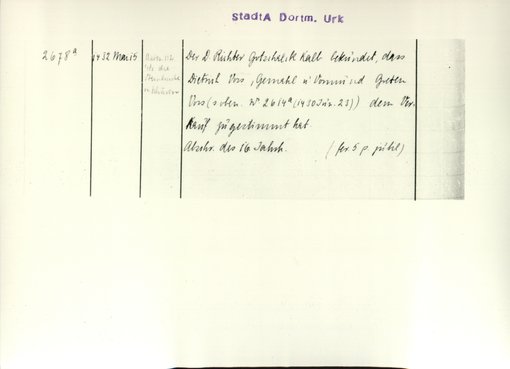 StadtA Dortm. Urk
2678ª 1432 Mai 5
Der D. Richter Gotschalk Kall bekundet, dass
Dietrich Vos, Gemahl u Vormund Greten
Vos (s oben. Nº 2614ª (1430 Jun. 23)) dem Ver-
kauf zugestimmt hat.
Abschr. des 16 Jahrh. (fer 5 p. jubil)